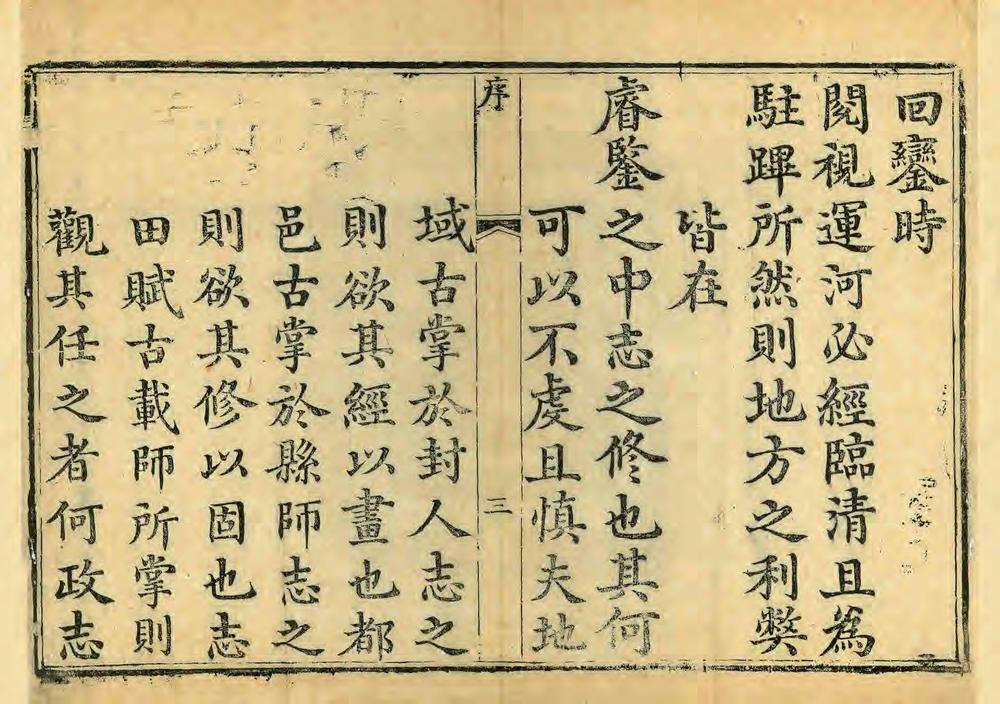 回鑾時
閱視運河必經臨清且為
駐蹕所然則地方之利弊
皆在
睿鑒之中志之修也其何
可以不虔且慎夫地
序
三
域古掌於封人志之
則欲其經以畫也都
邑古掌於縣師志之
則欲其修以固也志
田賦古載師所掌則
觀其任之者何政志